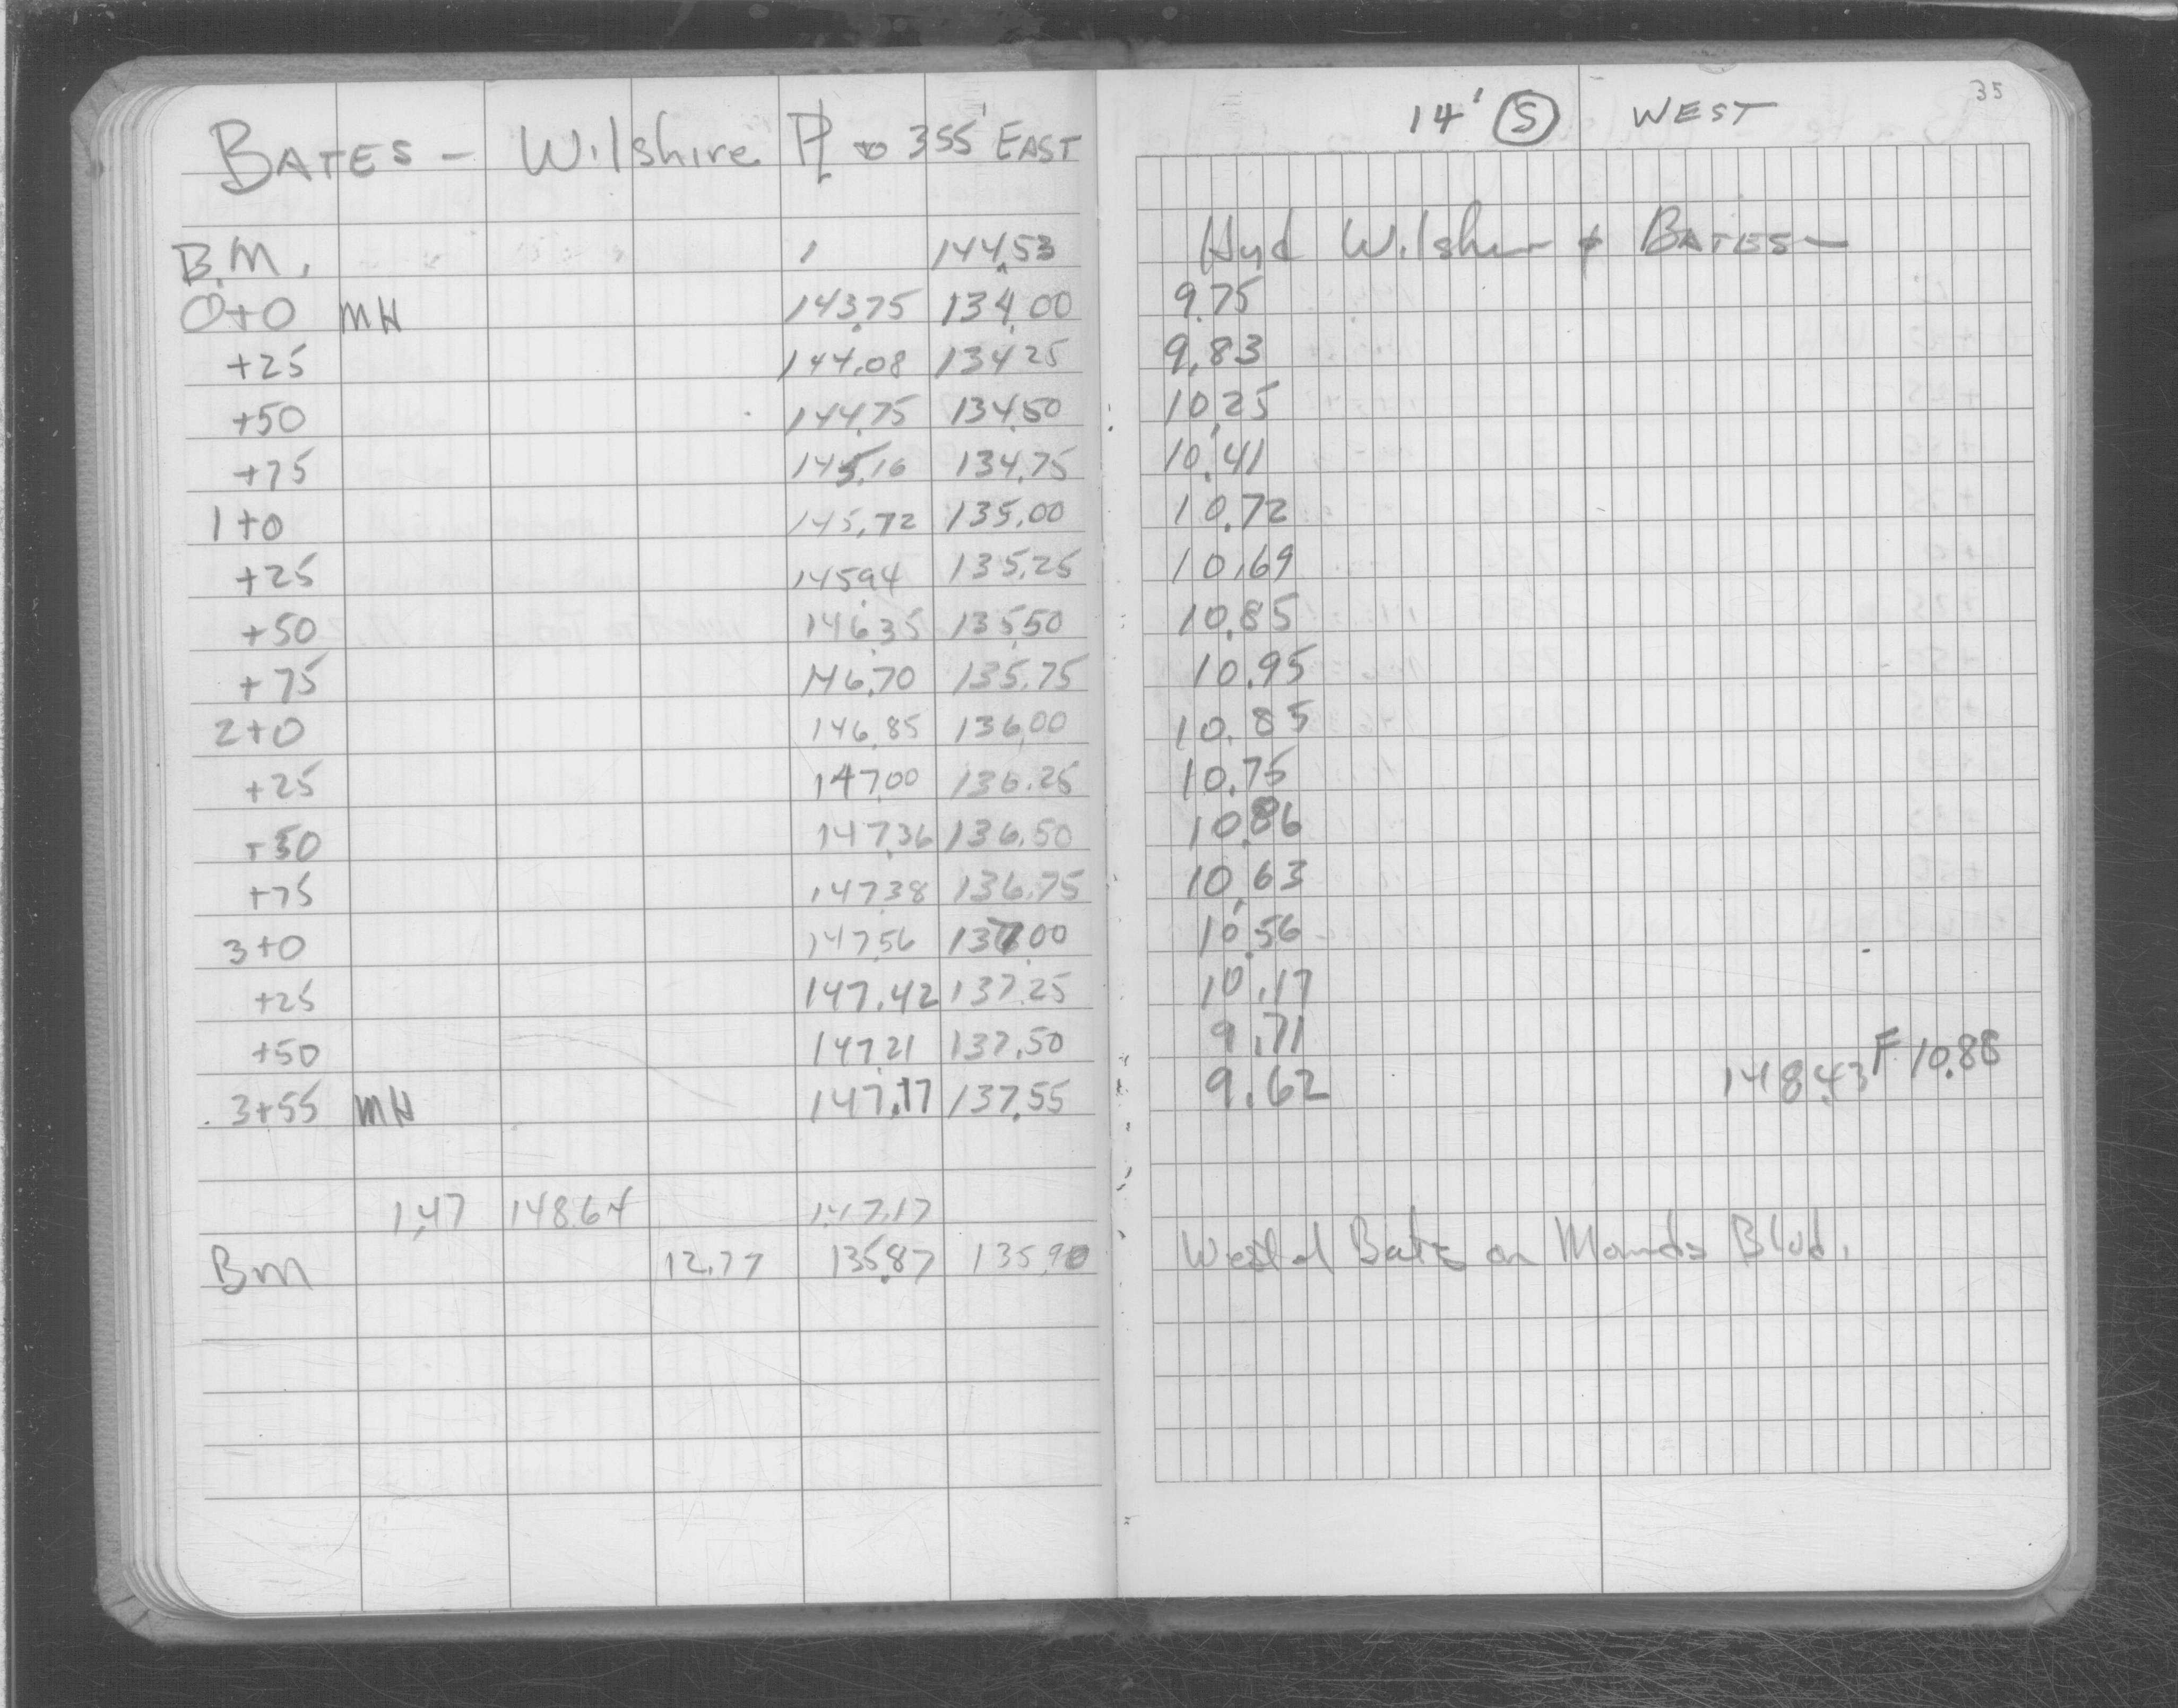 35
BATES - Wilshire PL to 355' EAST 14' S WEST
B.M. 144.53 Hyd Wilshire & BATES
0+0 MH 143.75 134.00 9.75
+25 144.08 134.25 9.83
+50 144.75 134.50 10.25
+75 145.16 134.75 10.41
1+0 145.72 135.00 10.72
+25 145.94 135.25 10.69
+50 146.35 135.50 10.85
+75 146.70 135.75 10.95
2+0 146.85 136.00 10.85
+25 147.00 136.25 10.75
+50 147.36 136.50 10.86
+75 147.38 136.75 10.63
3+0 147.56 137.00 10.56
+25 147.42 137.25 10.17
+50 147.21 137.50 9.71
3+55 MH 147.17 137.55 9.62 148.43 F 10.88
1.47 148.64 147.17
BM 12.77 135.87 135.90 West of Bates on Blvd.